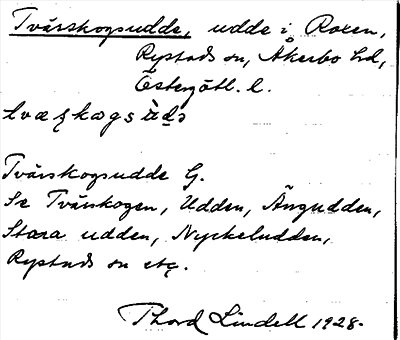 Tvärskogsudde, udde i Roxen,
Rystads sn, Åkerbo hd,
Östergötl. l.
Tvärskogsudde G.
Se Tvärskogen, Udden, Ängudden,
Stora udden, Nyckeludden,
Rystads sn etc.
Thord Lindell 1928.